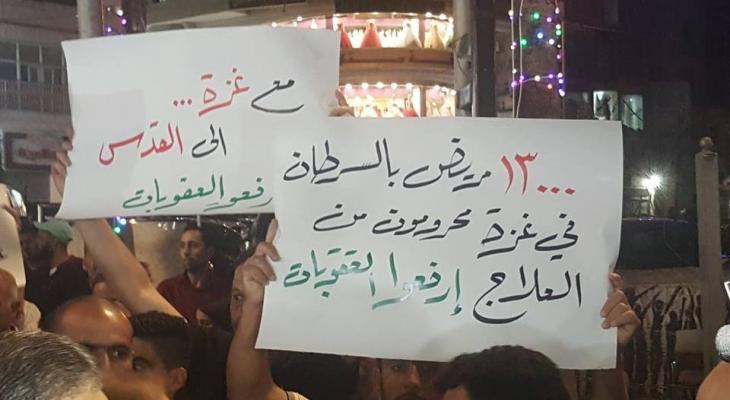 مع غزة ...
الى القدس
رفعوا العقوبات
١٣٠٠٠ مريض بالسرطان
في غزة محرومون من
العلاج إرفعوا العقوبات